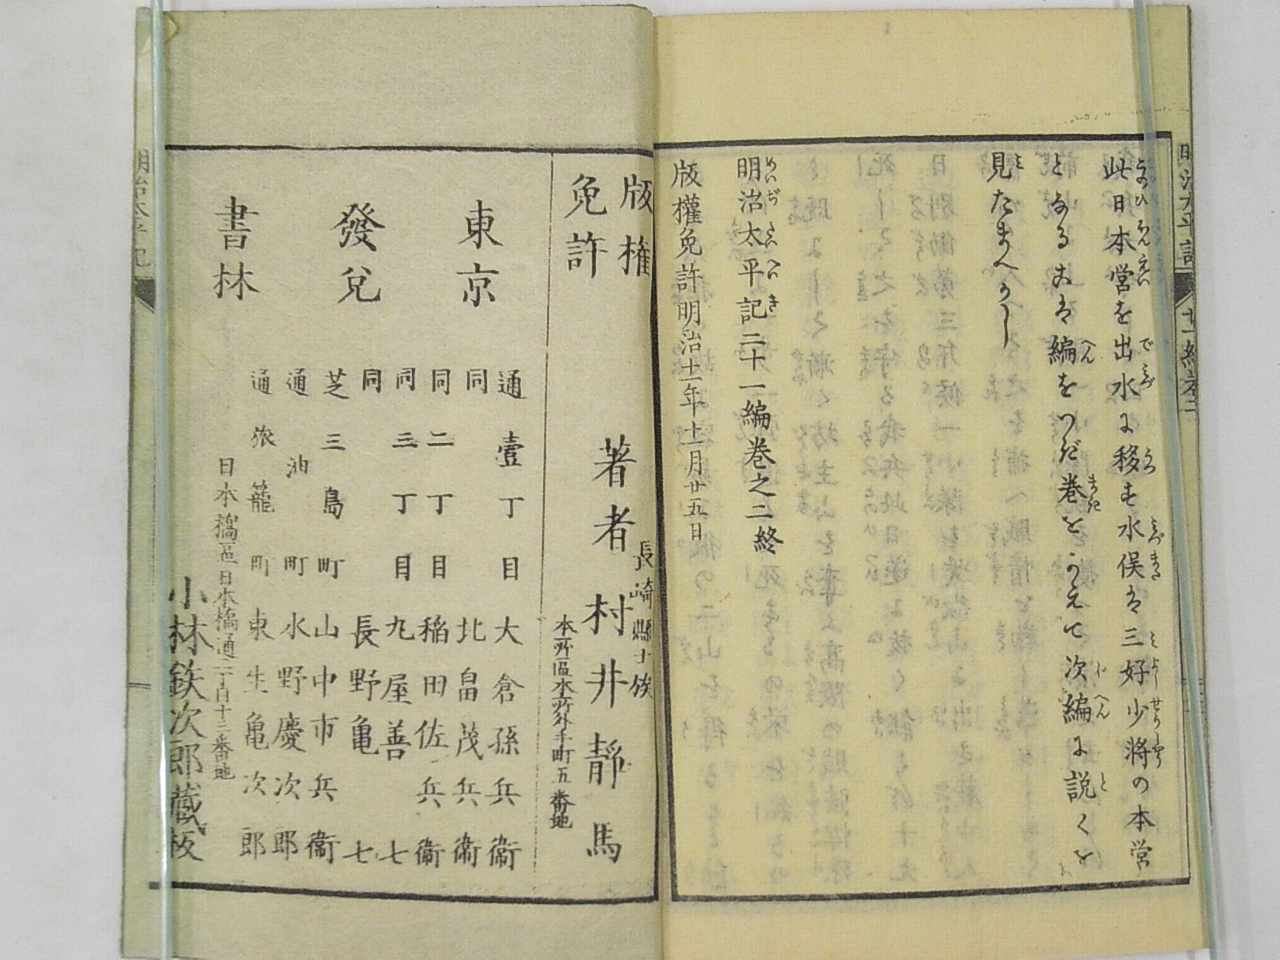 此日本営を出水に移す水俣は三好少将の本営
となる
編をつぎ巻をかえて次編に説くを
見たまへかし
明治太平記二十一編巻之二終
版權免許明治十一年十一月廿五日
版權
免許
長崎縣士族
著者 村井靜馬
本所區水所外手町五番地
東京
發兌
書林
通壹丁目 大倉孫兵衞
同 北畠茂兵衞
同二丁目 稲田佐兵衞
同三丁目 九屋善七
同 長野亀七
芝三島町 山中市兵衞
通油町 水野慶次郎
通旅籠町 東生亀次郎
日本橋區日本橋通二丁目十三番地
小林鉄次郎藏板